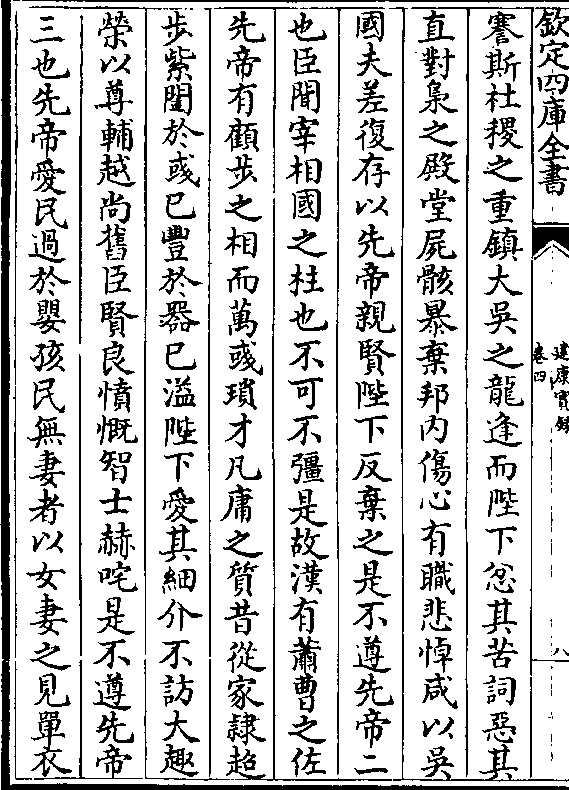 欽定四庫全書
建康實録
卷四
八
謇斯社稷之重鎮大吳之龍逢而陛下忿其苦詞惡其
直對梟之殿堂屍骸暴棄邦内傷心有職悲悼咸以吳
國夫差復存以先帝親賢陛下反棄之是不遵先帝二
也臣聞宰相國之柱也不可不彊是故漢有蕭曹之佐
先帝有顧步之相而萬彧瑣才凡庸之質昔從家隸超
步紫闥於彧已豐於器已溢陛下愛其細介不訪大趣
榮以尊輔越尚舊臣賢良憤慨智士赫咤是不遵先帝
三也先帝愛民過於嬰孩民無妻者以女妻之見單衣